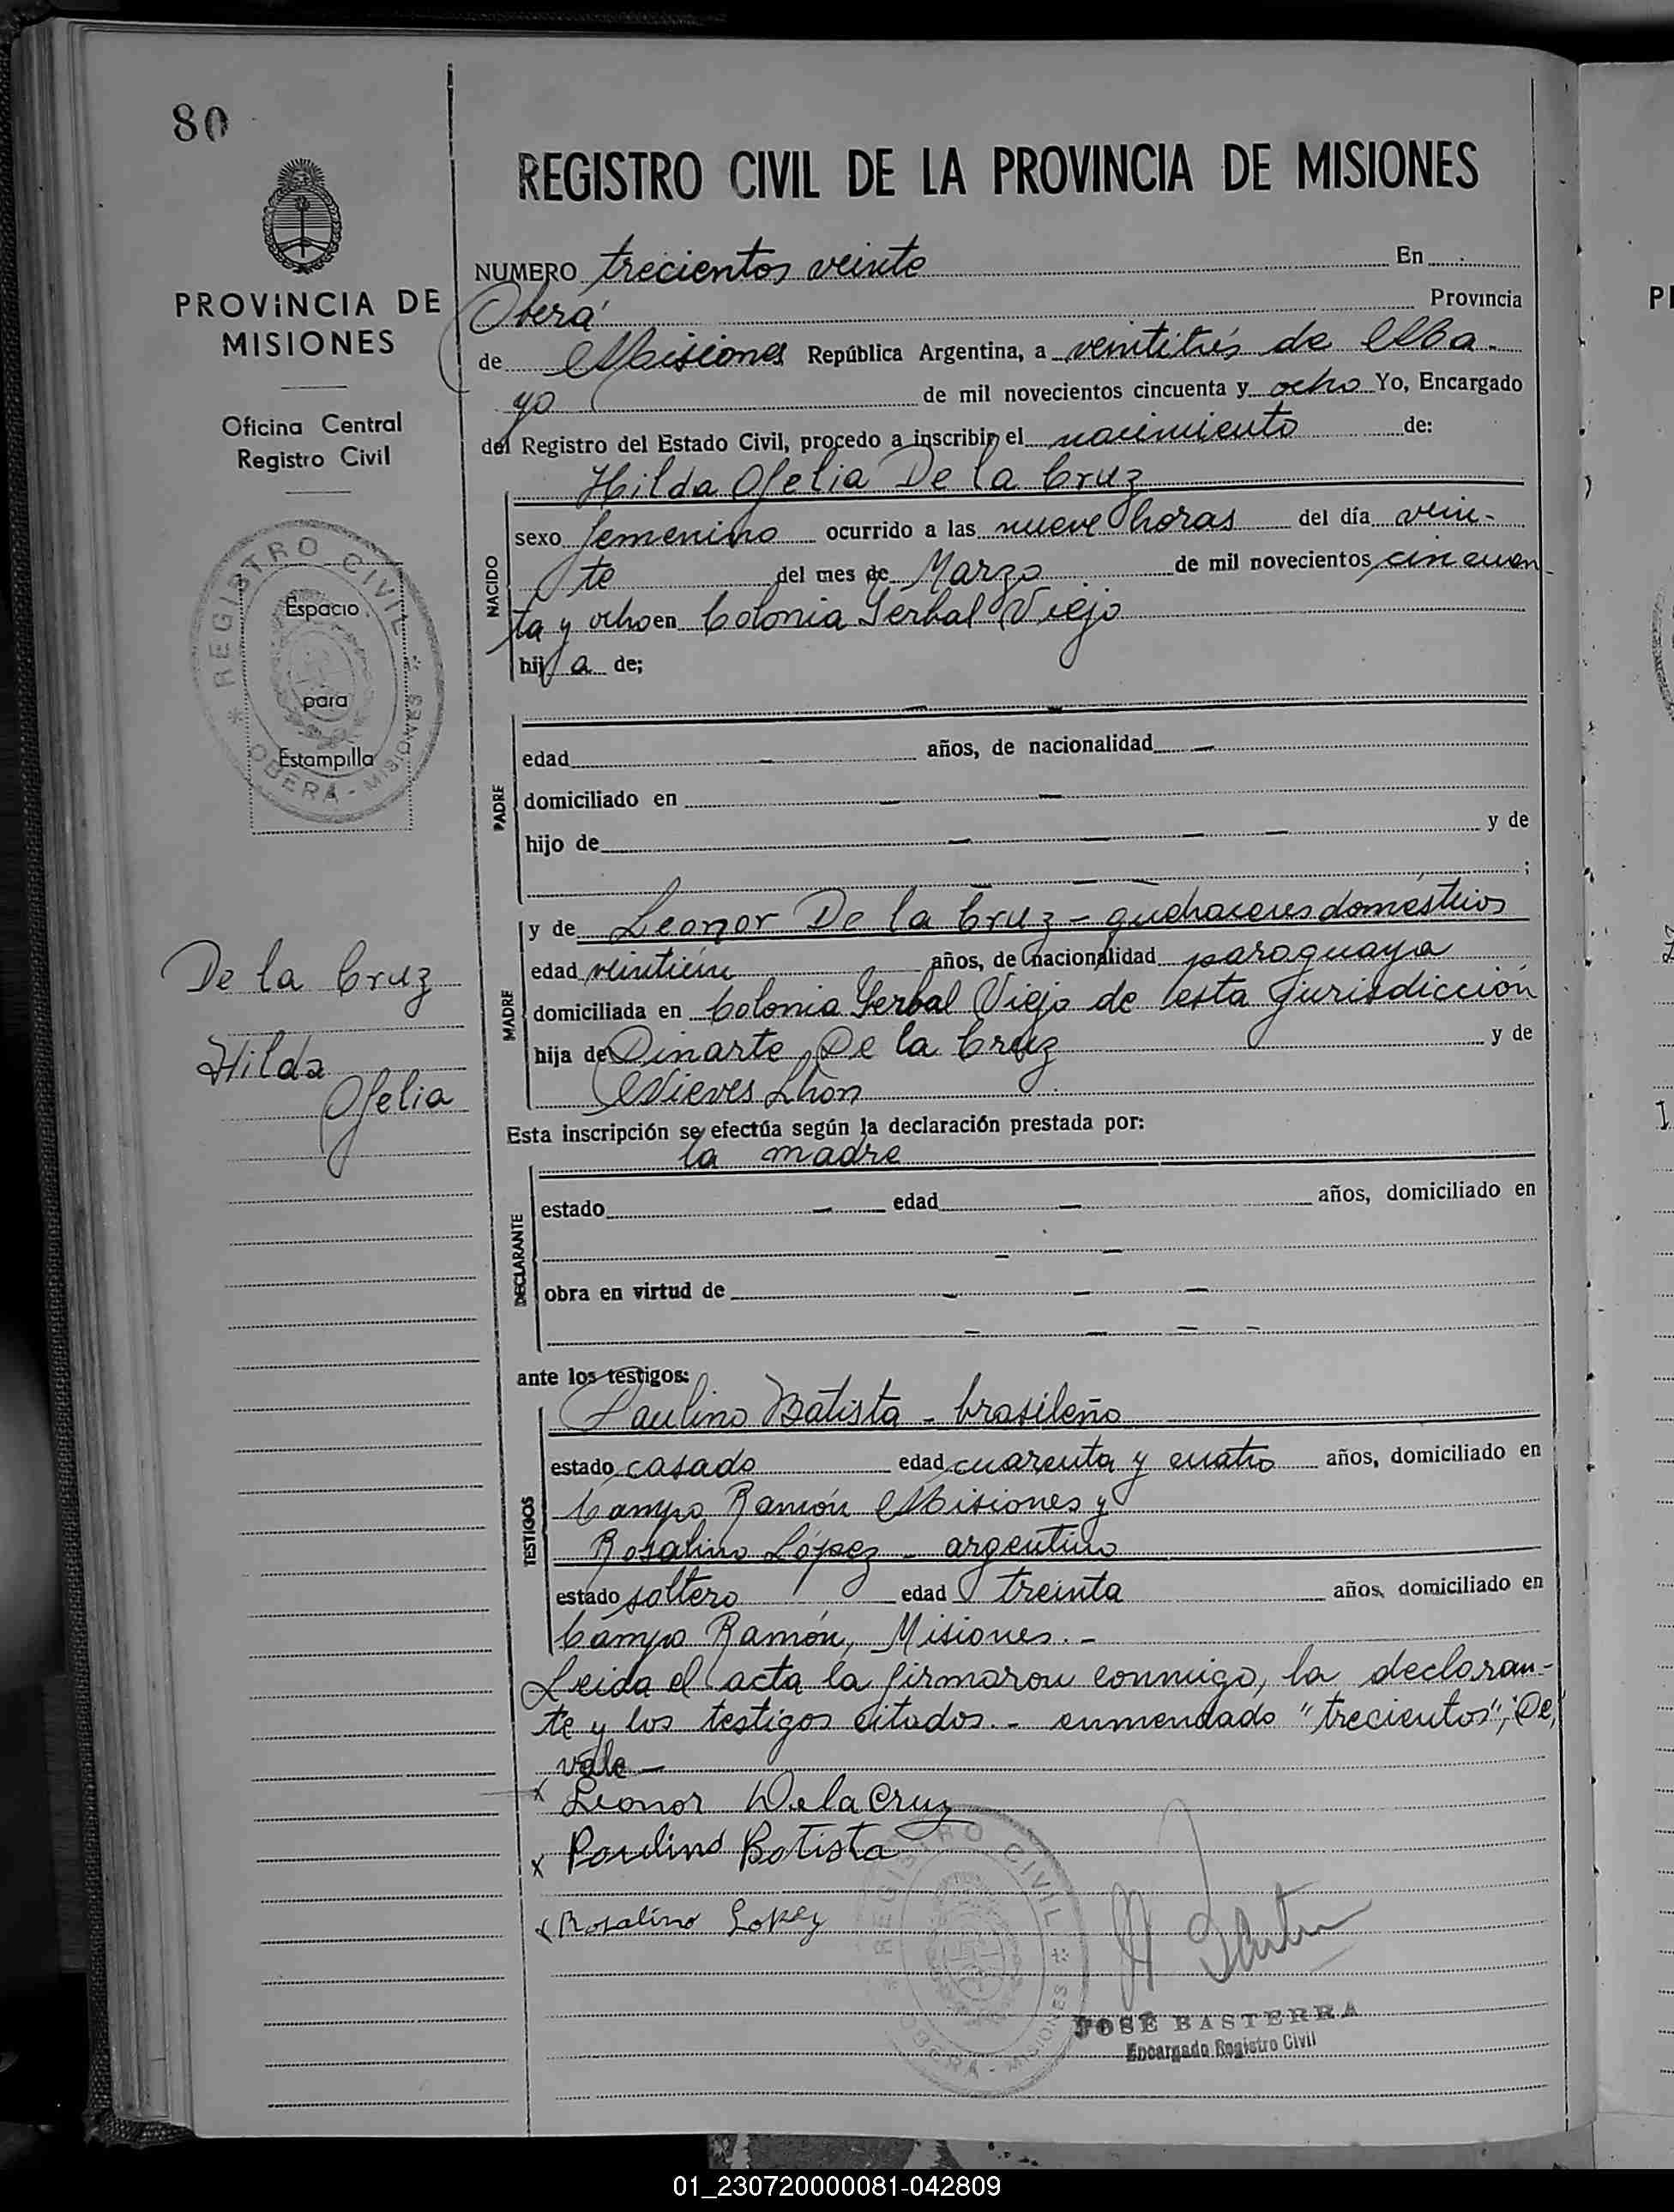 80
PROVINCIA DE
MISIONES
Oficina Central
Registro Civil
REGISTRO CIVIL
OBERÁ - MISIONES
Espacio
para
Estampilla
De la Cruz
Hilda
Ofelia
REGISTRO CIVIL DE LA PROVINCIA DE MISIONES
NUMERO trecientos veinte En
Oberá Provincia
de Misiones República Argentina, a veintitrés de Ma-
yo de mil novecientos cincuenta y ocho Yo, Encargado
del Registro del Estado Civil, procedo a inscribir el nacimiento de:
Hilda Ofelia De la Cruz
NACIDO
sexo femenino ocurrido a las nueve horas del día vein-
te del mes de Marzo de mil novecientos cincuen
ta y ocho en Colonia Yerbal Viejo
hij a de;
PADRE
edad años, de nacionalidad
domiciliado en
hijo de y de
;
MADRE
y de Leonor De la Cruz - quehaceres domésticos
edad veintiún años, de nacionalidad paraguaya
domiciliada en Colonia Yerbal Viejo de esta jurisdicción
hija de Dinarte De la Cruz y de
Nieves Lhon
Esta inscripción se efectúa según la declaración prestada por:
la madre
DECLARANTE
estado edad años, domiciliado en
obra en virtud de
ante los testigos:
TESTIGOS
Paulino Batista - brasileño
estado casado edad cuarenta y cuatro años, domiciliado en
Campo Ramón Misiones y
Rosalino López - argentino
estado soltero edad treinta años, domiciliado en
Campo Ramón, Misiones.-
Leida el acta la firmaron conmigo, la declaran-
te y los testigos citados.- enmendado "trecientos", "De,"
vale -
x Leonor De la Cruz
x Paulino Batista
x Rosalino Lopez
REGISTRO CIVIL
OBERÁ - MISIONES
JOSÉ BASTERRA
Encargado Registro Civil
01_230720000081-042809